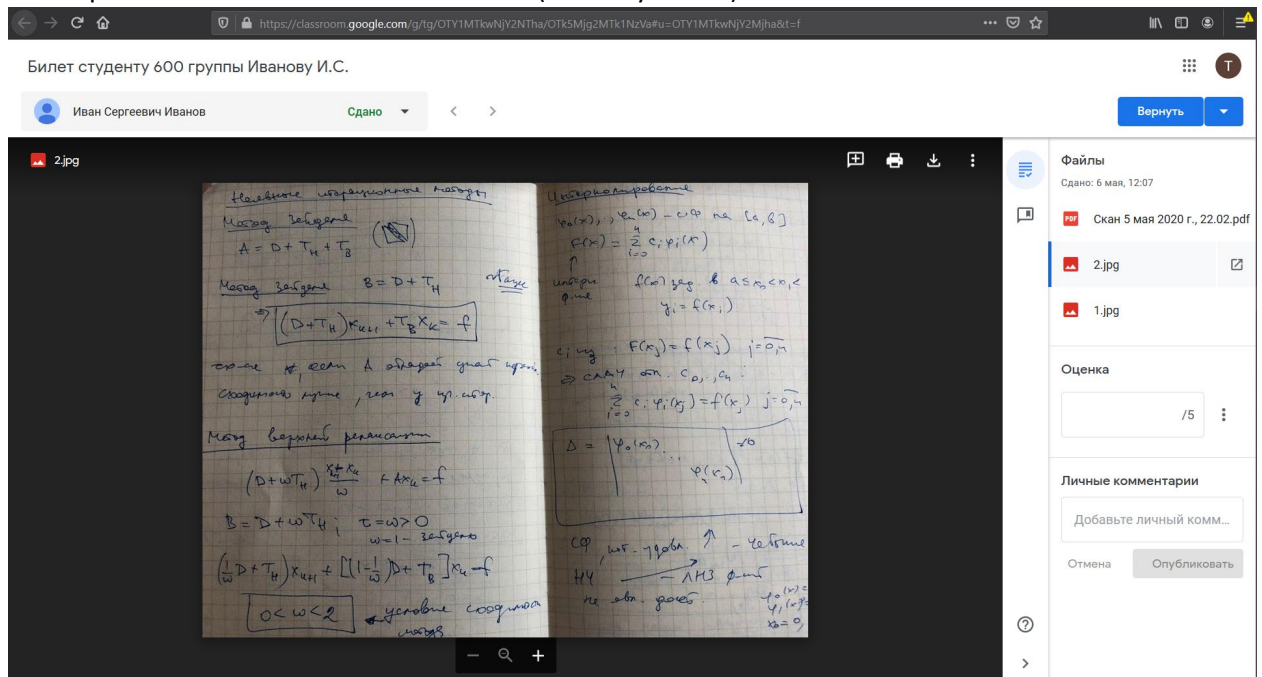 https://classroom.google.com/g/tg/OTY1MTkwNjY2NTha/OTk5Mjg2MTk1NzVa#u=OTY1MTkwNjY2Mjha&t=f
Билет студенту 600 группы Иванову И.С.
T
Иван Сергеевич Иванов
Сдано
Вернуть
2.jpg
Неявные итерационные методы
Метод Зейделя
A = D + T_H + T_B
Метод Зейделя B = D + T_H
⇒ (D+T_H)x_{k+1} + T_B x_k = f
если A обладает диаг.
сходимость лучше, чем у
Метод верхней релаксации
(D+ωT_H) + Ax_k = f
B = D + ωT_H; τ=ω>0
ω=1 – Зейделя
(1/ω D + T_H)x_{k+1} + [(1-1/ω)D + T_B]x_k = f
0<ω<2 условие сходимости
метода
Интерполирование
φ_0(x), , φ_n(x) – на [a, b]
F(x) = Σ c_i φ_i(x)
f(x) зад. в a≤x_0<x_1<
y_i = f(x_i)
c_i из F(x_j) = f(x_j) j=0,n
⇒ СЛАУ отн. c_0,.,c_n:
Σ c_i φ_i(x_j) = f(x_j) j=0,n
Δ = | φ_0(x_0) ... φ_n(x_n) | ≠0
СФ, – Чебышев
НЧ – ЛНЗ
не явл. дост.
φ_0(x)=
φ_1(x)=
x_0=0,
Файлы
Сдано: 6 мая, 12:07
PDF
Скан 5 мая 2020 г., 22.02.pdf
2.jpg
1.jpg
Оценка
/5
Личные комментарии
Добавьте личный комм...
Отмена Опубликовать